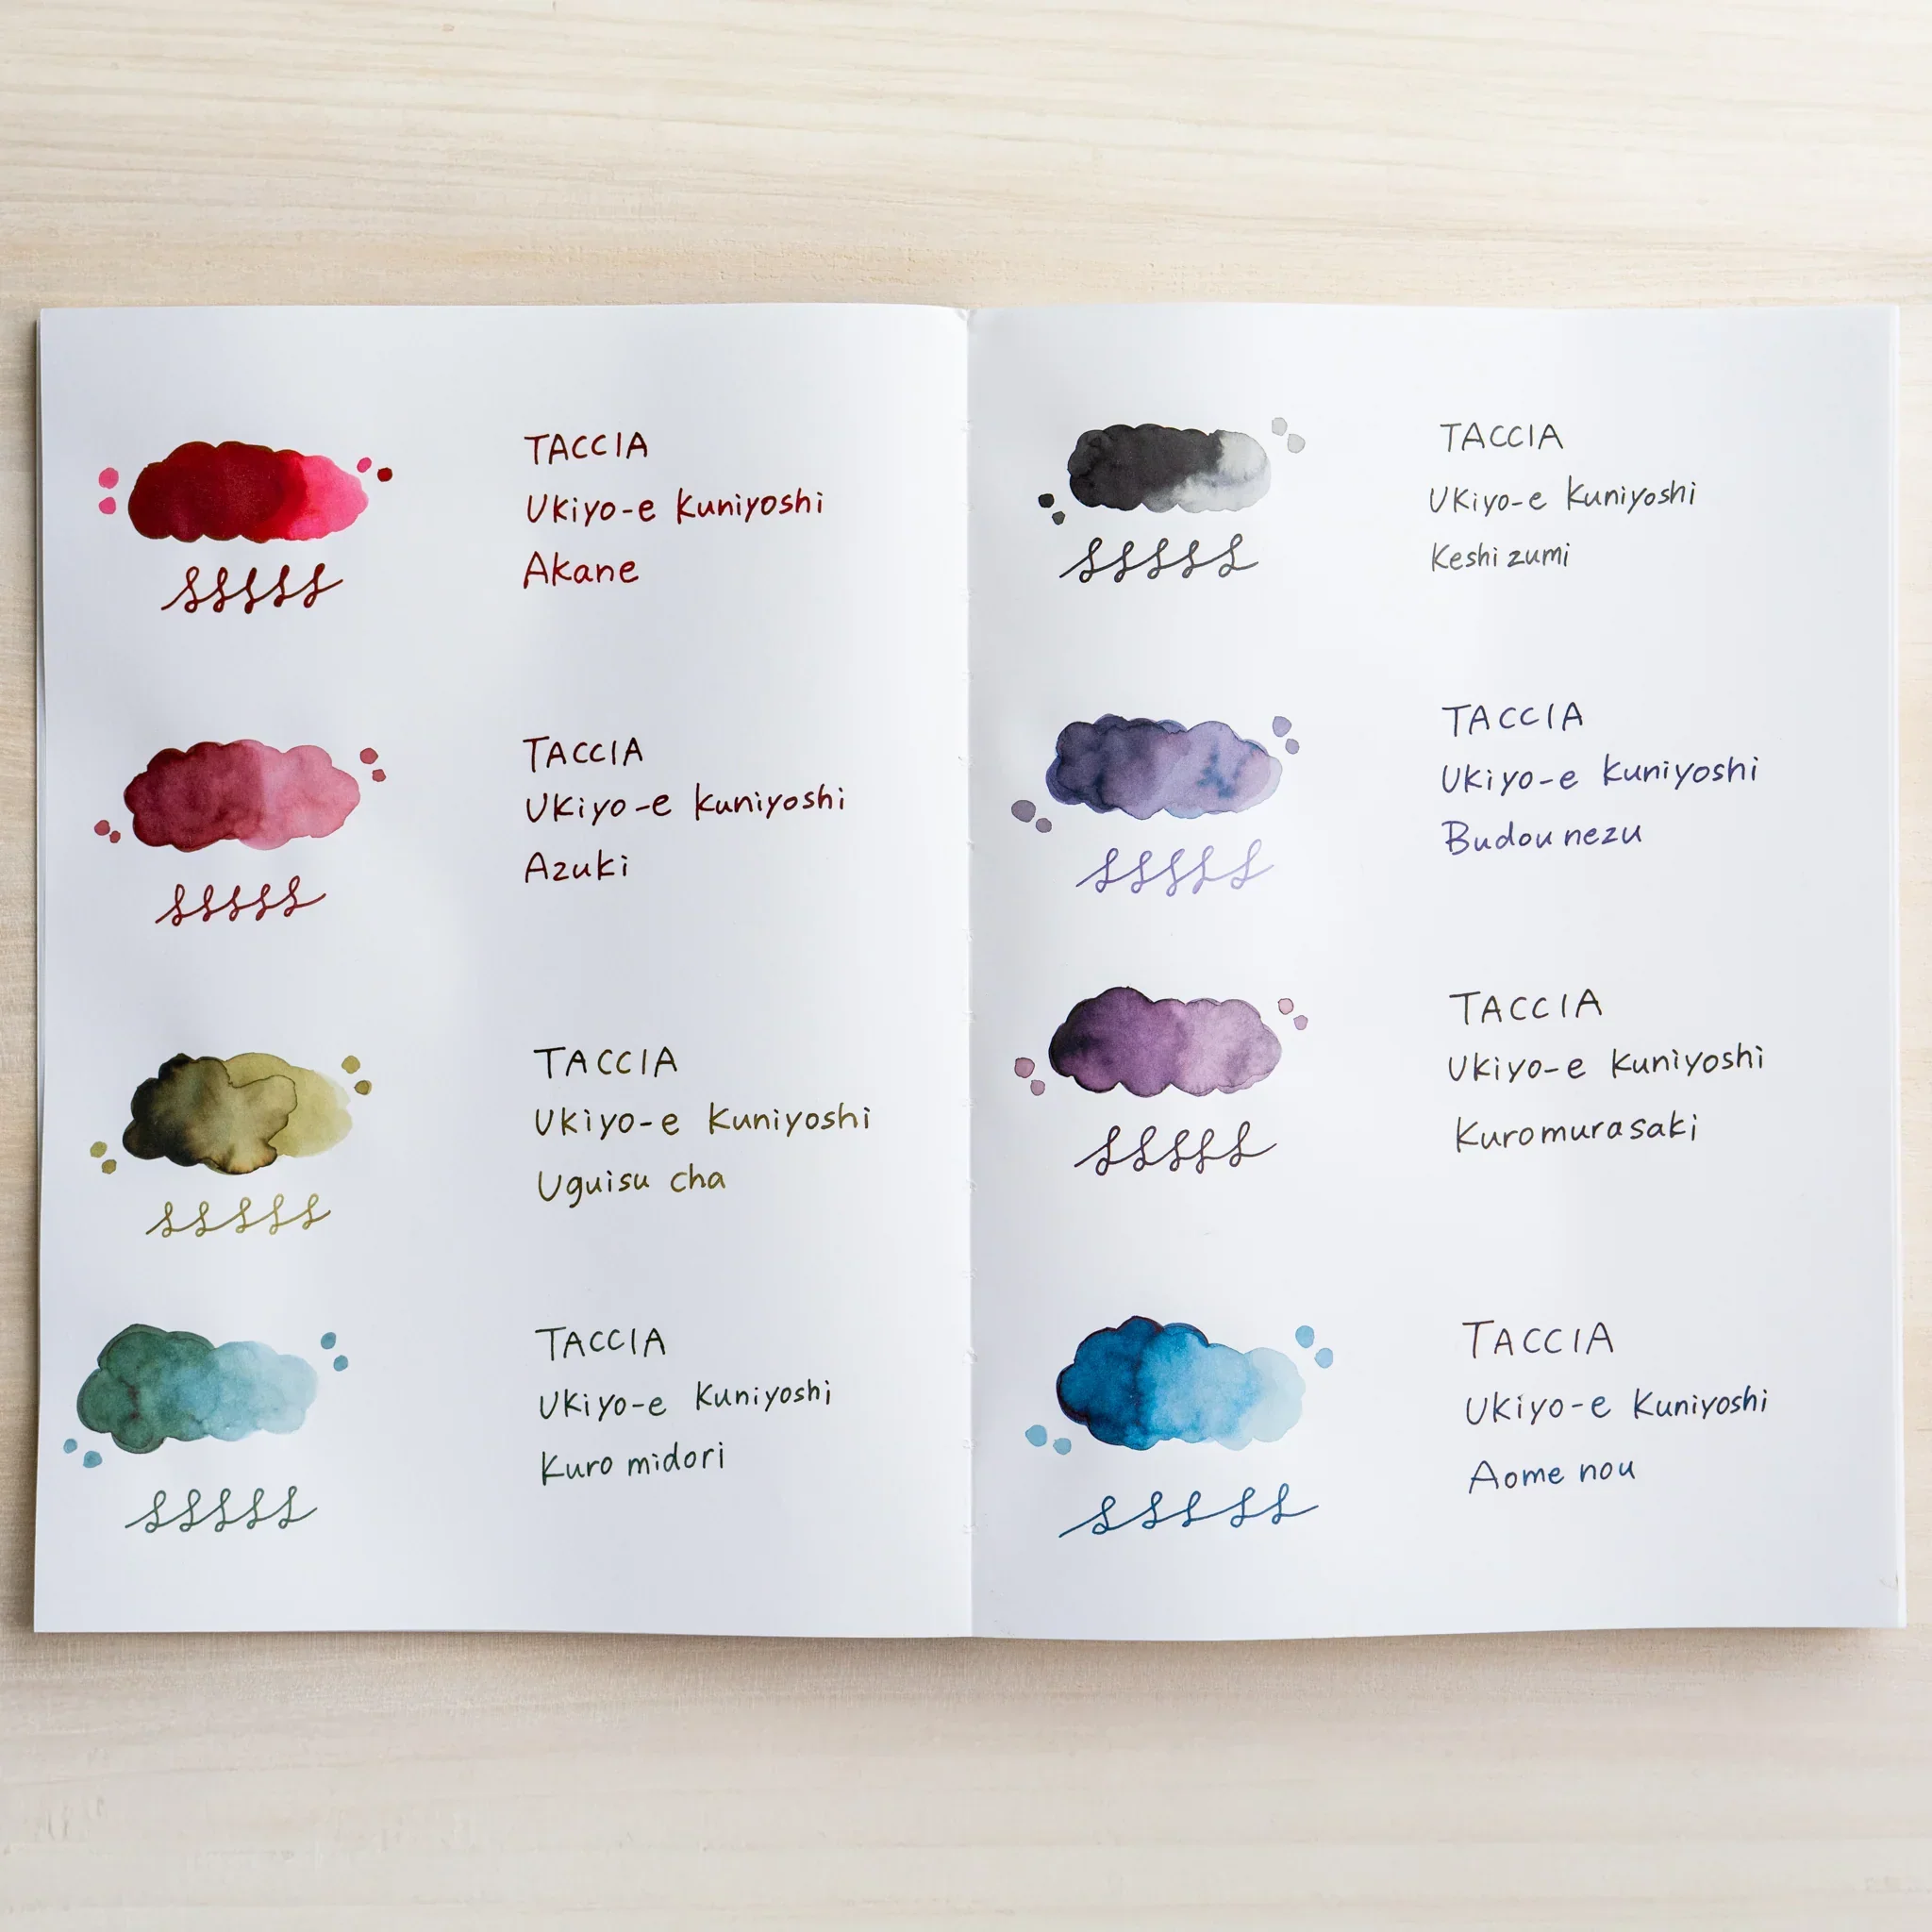 TACCIA
Ukiyo-e Kuniyoshi
Akane
TACCIA
Ukiyo-e Kuniyoshi
Azuki
TACCIA
Ukiyo-e Kuniyoshi
Uguisu cha
TACCIA
Ukiyo-e Kuniyoshi
Kuro midori
TACCIA
Ukiyo-e Kuniyoshi
Keshi zumi
TACCIA
Ukiyo-e Kuniyoshi
Budou nezu
TACCIA
Ukiyo-e Kuniyoshi
Kuromurasaki
TACCIA
Ukiyo-e Kuniyoshi
Aome nou